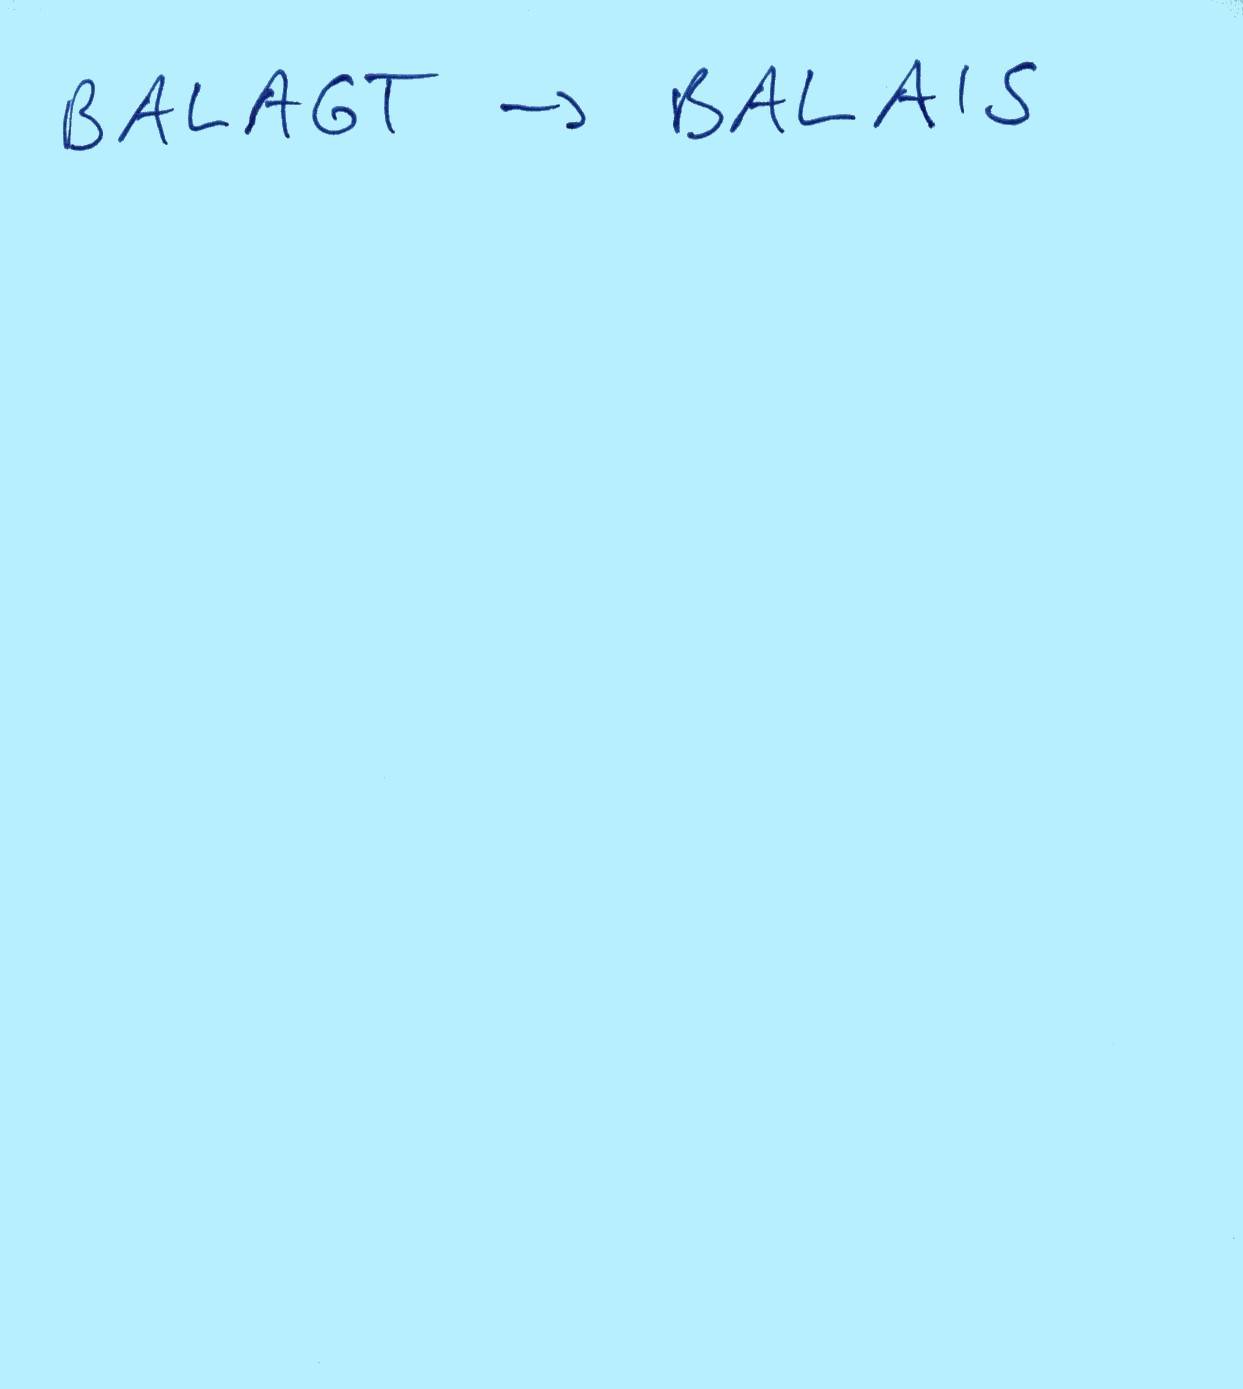 BALAGT → BALAIS